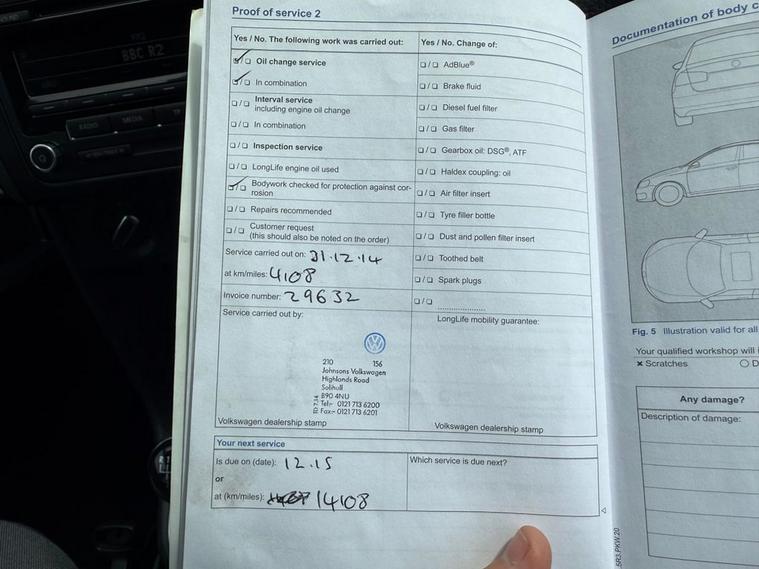 BBC R2
RADIO
MEDIA
Proof of service 2
Yes / No. The following work was carried out:
Oil change service
In combination
Interval service
including engine oil change
In combination
Inspection service
LongLife engine oil used
Bodywork checked for protection against cor-
rosion
Repairs recommended
Customer request
(this should also be noted on the order)
Service carried out on: 31.12.14
at km/miles: 4108
Invoice number: 29632
Service carried out by:
210 156
Johnsons Volkswagen
Highlands Road
Solihull
B90 4NU
Tel:- 0121 713 6200
Fax:- 0121 713 6201
Volkswagen dealership stamp
Yes / No. Change of:
AdBlue®
Brake fluid
Diesel fuel filter
Gas filter
Gearbox oil: DSG®, ATF
Haldex coupling: oil
Air filter insert
Tyre filler bottle
Dust and pollen filter insert
Toothed belt
Spark plugs
LongLife mobility guarantee:
Volkswagen dealership stamp
Your next service
Is due on (date): 12.15
or
at (km/miles): 14108
Which service is due next?
Documentation of body
Fig. 5 Illustration valid for all
Your qualified workshop will
× Scratches
Any damage?
Description of damage: